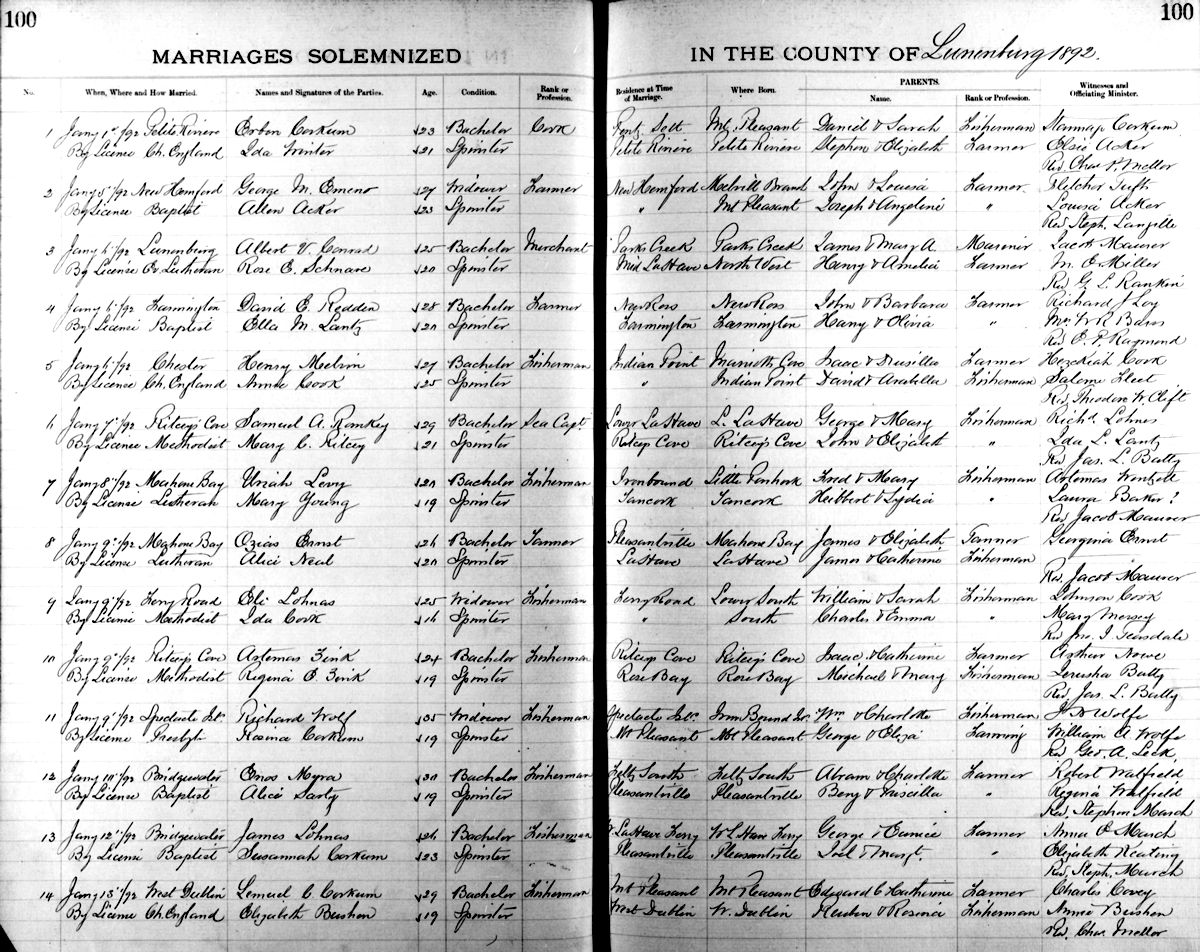 100
100
MARRIAGES SOLEMNIZED IN THE COUNTY OF Lunenburg 1892.
No. When, Where and How Married. Names and Signatures of the Parties. Age. Condition. Rank or Profession. Residence at Time of Marriage. Where Born. PARENTS. Name. Rank or Profession. Witnesses and Officiating Minister.
1 Jany 1st/92 Petite Riviere Orbon Corkum 23 Bachelor Cook Mt. Pleasant Daniel & Sarah Fisherman Corkum
By License Ch. England Ida Winter 21 Spinster Petite Riviere Petite Riviere Stephen & Elizabeth Farmer Elsie Acker
Rev. Chas. P. Mellor
2 Jany 5"/92 New Hemford George M. Emeno 27 Widower Farmer New Hemford John & Louisa Farmer Fletcher Tufts
By License Baptist Allen Acker 23 Spinster " Mt Pleasant Joseph & Angelini " Louisa Acker
Rev. Steph. Langille
3 Jany 6"/92 Lunenburg Albert V. Conrad 25 Bachelor Merchant Parks Creek Parks Creek James & Mary A. Mariner Jacob Maurer
By License Ev. Lutheran Rose E. Schnare 20 Spinster Mid LaHave North West Henry & Amelia Farmer M. E. Miller
Rev G. L. Rankin
4 Jany 6"/92 Farmington David E. Redden 28 Bachelor Farmer New Ross New Ross John & Barbara Farmer Richard J Loy
By License Baptist Ella M. Lantz 20 Spinster Farmington Farmington Harry & Olivia " Mrs W. R. Barss
Rev E. P. Raymond
5 Jany 6"/92 Chester Henry Melvin 27 Bachelor Fisherman Indian Point Marriott Cove Isaac & Drusilla Farmer Hezekiah Cook
By License Ch. England Annie Cook 25 Spinster " Indian Point David & Arabella Fisherman Salome Fleet
Rev. Theodore W. Clift
6 Jany 7"/92 Ritcey's Cove Samuel A. Romkey 29 Bachelor Sea Capt Lower LaHave L. LaHave George & Mary Fisherman Richd. Lohnes
By License Methodist Mary C. Ritcey 21 Spinster Ritcey Cove Ritcey's Cove John & Elizabeth " Ida L. Lantz
Rev Jas. L. Batty
7 Jany 8"/92 Mahone Bay Uriah Levy 20 Bachelor Fisherman Ironbound Little Tanhook Fred & Mary Fisherman Artemas Wentzell
By License Lutheran Mary Young 19 Spinster Tancook Tancook Heibbert & Lydia " Laura Baker?
Rev Jacob Maurer
8 Jany 9"/92 Mahone Bay Ozias Ernst 26 Bachelor Tanner Pleasantville Mahone Bay James & Elizabeth Tanner Georgenia Ernst
By License Lutheran Alice Neal 20 Spinster LaHave LaHave James & Catherine Fisherman
Rev. Jacob Maurer
9 Jany 9"/92 Feny Road Eli Lohnas 25 Widower Fisherman Feny Road Lower South William & Sarah Fisherman Johnson Cook
By License Methodist Ida Cook 16 Spinster " South Charles & Emma " Mary Mersey
Rev Jno. I Teasdale
10 Jany 9"/92 Ritcey's Cove Artemas Zink 24 Bachelor Fisherman Ritcey Cove Ritcey's Cove Isaac & Catherine Farmer Arthur Nowe
By License Methodist Regina E. Zink 19 Spinster Rose Bay Rose Bay Michael & Mary Fisherman Jerusha Batty
Rev. Jas. L. Batty
11 Jany 9"/92 Spectacle Isl. Richard Wolf 35 Widower Fisherman Spectacle Isl. Iron Bound Is. Wm & Charlotte Fisherman Wolfe
By License Presbyt Rosina Corkum 19 Spinster Mt Pleasant Mt Pleasant George & Eliza Farming William A Wolfe
Rev Geo. A. Leck
12 Jany 10"/92 Bridgewater Enos Myra 30 Bachelor Fisherman Feltz South Feltz South Abram & Charlotte Farmer Robert Watfield
By License Baptist Alice Sarty 19 Spinster Pleasantville Pleasantville Benj & Priscilla " Regina Watfield
Rev Stephen March
13 Jany 12"/92 Bridgewater James Lohnas 26 Bachelor Fisherman LaHave Feny W LaHave Feny George & Eunice Farmer Anna E March
By License Baptist Susannah Corkum 23 Spinster Pleasantville Pleasantville Joel & Margt. " Elizabeth Keating
Rev. Steph. March
14 Jany 13"/92 West Dublin Lemuel C Corkum 29 Bachelor Fisherman Mt Pleasant Mt Pleasant Edward C Catherine Farmer Charles Covey
By License Ch. England Elizabeth Bushen 19 Spinster West Dublin W. Dublin Reuben & Rosina Fisherman Annie Bushen
Rev. Chas. Mellor